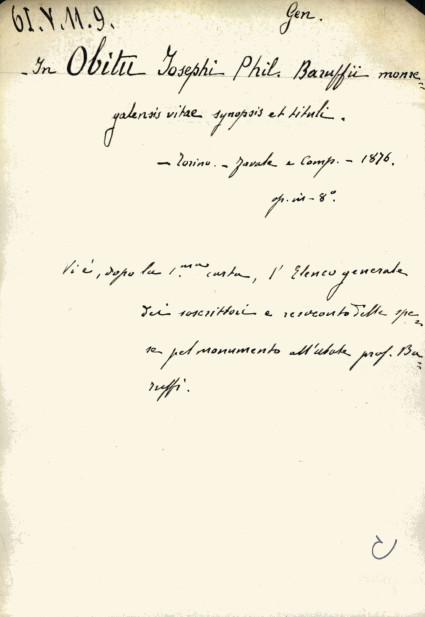 61.V.11.9.
Gen.
In Obitu Iosephi Phil. Baruffii monre=
galensis vitae synopsis et tituli.
— Torino. — Favale e Comp. — 1876.
op. in-8°.
Vi è, dopo la 1.ma carta, l'Elenco generale
dei soscrittori e resoconto delle spe=
se pel monumento all'abate prof. Ba=
ruffi.